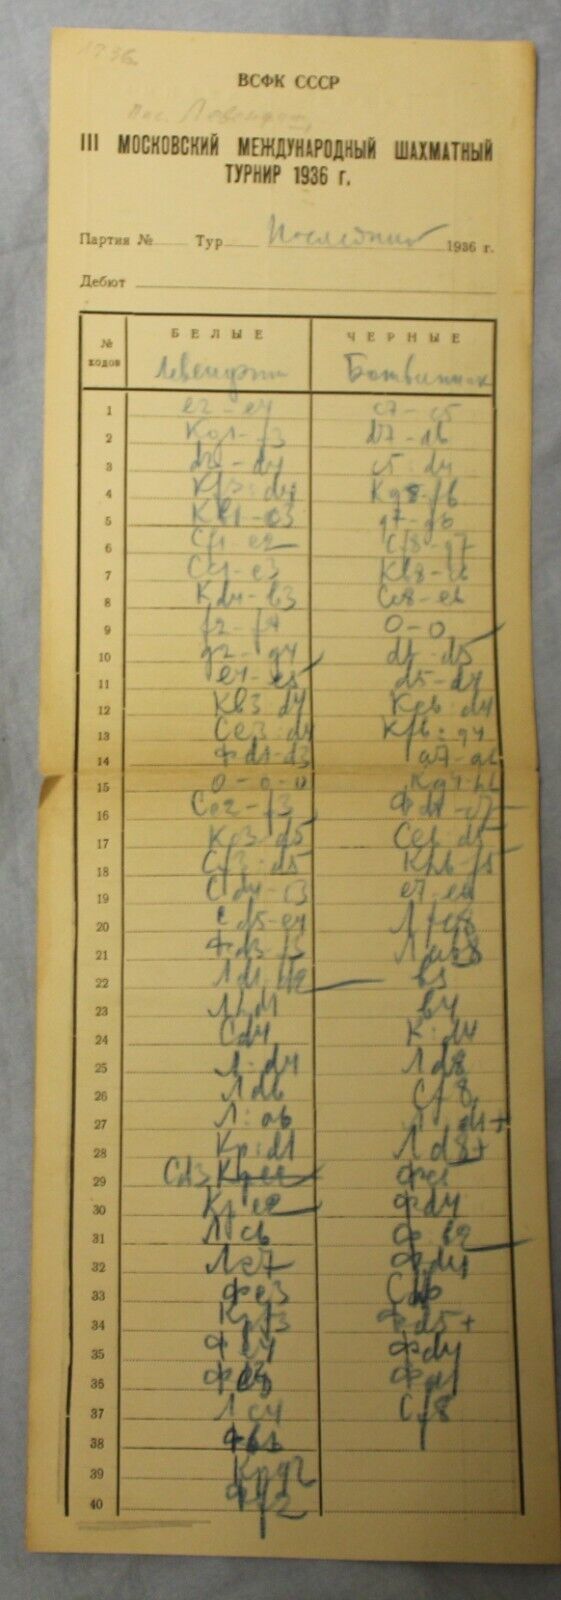 1936
ВСФК СССР
III МОСКОВСКИЙ МЕЖДУНАРОДНЫЙ ШАХМАТНЫЙ
ТУРНИР 1936 г.
Партия № Тур Последний 1936 г.
Дебют
№ ходов БЕЛЫЕ ЧЕРНЫЕ
Левенфиш Ботвинник
1 e2-e4 c7-c5
2 Kg1-f3 d7-d6
3 d2-d4 c5:d4
4 Kf3:d4 Kg8-f6
5 Kb1-c3 g7-g6
6 Cf1-e2 Cf8-g7
7 Cc1-e3 Kb8-c6
8 Kd4-b3 Cc8-e6
9 f2-f4 0-0
10 g2-g4 d6-d5
11 e4-e5 d5-d4
12 Kb3:d4 Kc6:d4
13 Ce3:d4 Kf6:g4
14 Фd1-d3 a7-a6
15 0-0-0 Kg4-h6
16 Ce2-f3 Фd8-c7
17 Kc3-d5 Ce6:d5
18 Cf3:d5 Kh6-f5
19 Cd4-c3 e7-e6
20 Cd5-e4 Лfc8
21 Фd3-f3 Лab8
22 b5
23 Лhd1 b4
24 Cd4 K:d4
25 Л:d4 Лd8
26 Лd6 Cf8
27 Л:a6 Л:d1+
28 Kp:d1 Лd8+
29 Cd3
30 Kpe2 Фd4
31 Лc6 Ф:b2
32 Лc7 Фd4
33 Фe3
34 Kpf3 Фd5+
35 Фe4 Фd4
36 Фa1
37 Лc4 Cf8
38 Фb1
39 Kpg2
40 Фf2